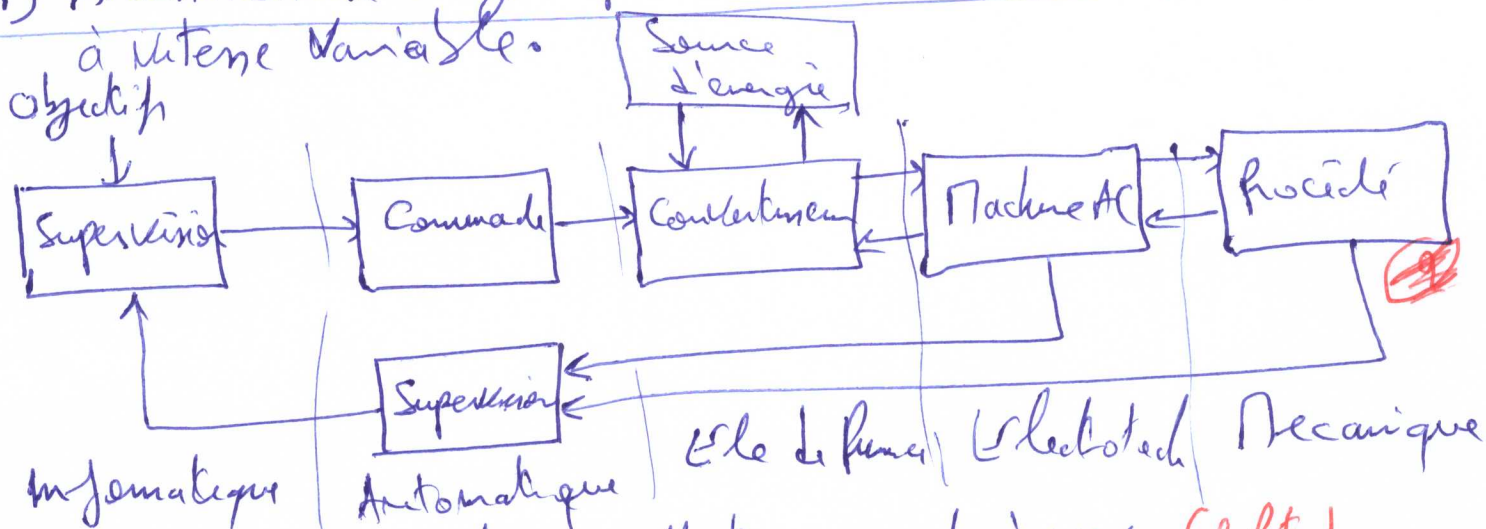 à vitesse Variable.
Objectifs
Source
d'énergie
Supervision
Commade
Convertisseur
Machine AC
Procédé
Supervision
Informatique
Automatique
Ele de
Electrotech
Mecanique